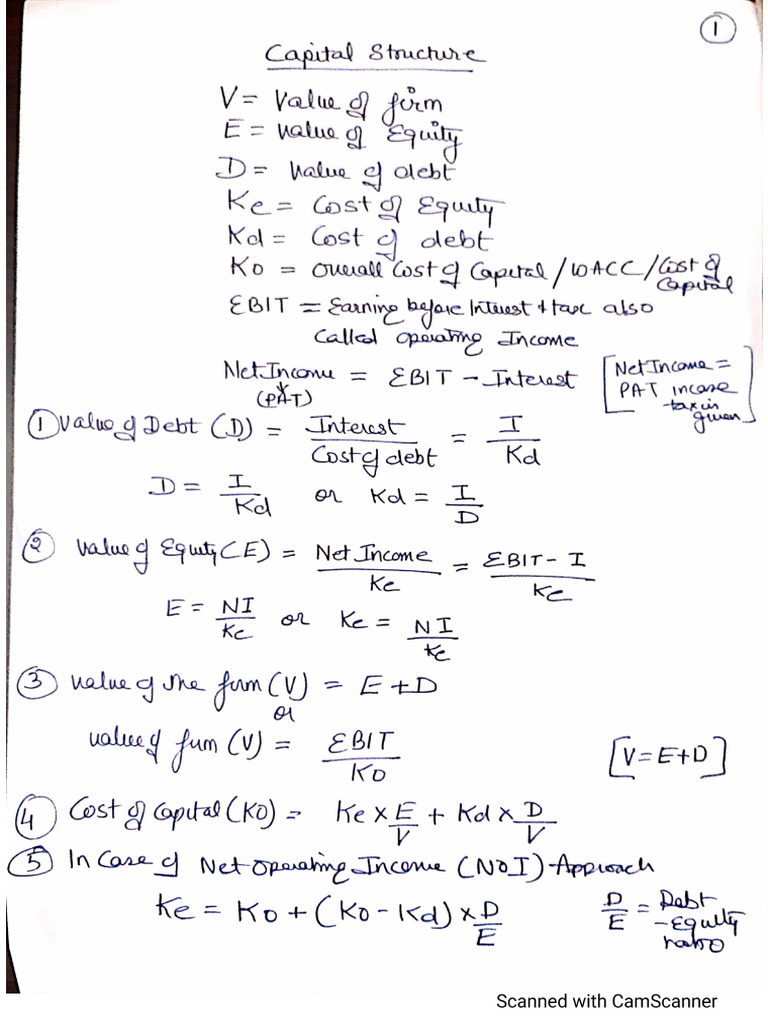 1
Capital Structure
V = Value of firm
E = Value of Equity
D = Value of debt
Ke = Cost of Equity
Kd = Cost of debt
Ko = Overall Cost of Capital / WACC / Cost of Capital
EBIT = Earning before Interest + tax also
Called operating Income
Net Income (PAT) = EBIT - Interest [Net Income = PAT incase tax is given]
① Value of Debt (D) = Interest / Cost of debt = I / Kd
D = I / Kd or Kd = I / D
② Value of Equity (E) = Net Income / Ke = EBIT - I / Ke
E = NI / Ke or Ke = NI / Ke
③ Value of the firm (V) = E + D
or
Value of firm (V) = EBIT / Ko [V = E + D]
④ Cost of Capital (Ko) = Ke × E / V + Kd × D / V
⑤ In Case of Net Operating Income (NOI) - Approach
Ke = Ko + (Ko - Kd) × D / E D / E = Debt - Equity ratio
Scanned with CamScanner